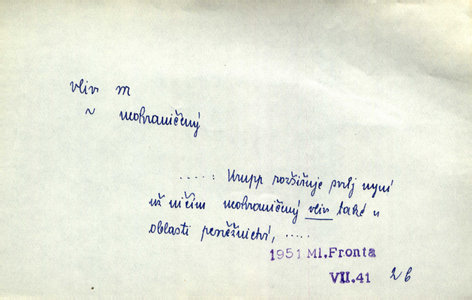 vliv m
~ neohraničený
..... Krupp rozšiřuje svůj nyní
už ničím neohraničený vliv také v
oblasti peněžnictví, .....
1951 Ml.Fronta
VII.41 26